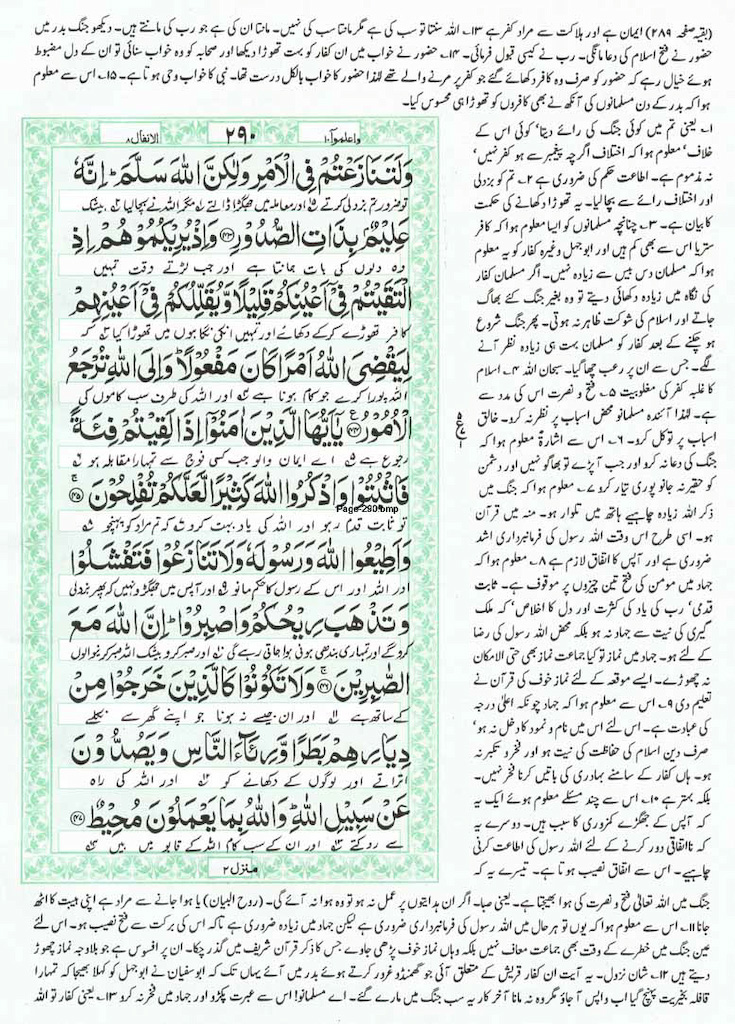 (بقیہ صفحہ ۲۸۹) ایمان ہے اور ہلاکت سے مراد کفر ہے ۱۳۔ اللہ سنتا تو سب کی ہے مگر مانتا سب کی نہیں۔ مانتا ان کی ہے جو رب کی مانتے ہیں۔ دیکھو جنگ بدر میں
حضور نے فتح اسلام کی دعا مانگی۔ رب نے کیسی قبول فرمائی۔ ۱۴۔ حضور نے خواب میں ان کفار کو بہت تھوڑا دیکھا اور صحابہ کو وہ خواب سنائی تو ان کے دل مضبوط
ہوئے خیال رہے کہ حضور کو صرف وہ کافر دکھائے گئے جو کفر پر مرنے والے تھے لہٰذا حضور کا خواب بالکل درست تھا۔ نبی کا خواب وحی ہوتا ہے۔ ۱۵۔ اس سے معلوم
ہوا کہ بدر کے دن مسلمانوں کی آنکھ نے بھی کافروں کو تھوڑا ہی محسوس کیا۔
واعلموا ۱۰ ۲۹۰ الانفال ۸
وَلَتَنَازَعْتُمْ فِی الْاَمْرِ وَلٰكِنَّ اللّٰهَ سَلَّمَ ؕ اِنَّهٗ
تو ضرور تم بزدلی کرتے اور معاملہ میں جھگڑا ڈالتے مگر اللہ نے بچا لیا بیشک
عَلِیْمٌۢ بِذَاتِ الصُّدُوْرِ ﴿۴۳﴾ وَاِذْ یُرِیْكُمُوْهُمْ اِذِ
وہ دلوں کی بات جانتا ہے اور جب لڑتے وقت تمہیں
الْتَقَیْتُمْ فِیْۤ اَعْیُنِكُمْ قَلِیْلًا وَّیُقَلِّلُكُمْ فِیْۤ اَعْیُنِهِمْ
کافر تھوڑے کر کے دکھائے اور تمہیں انکی نگاہوں میں تھوڑا کیا کہ
لِیَقْضِیَ اللّٰهُ اَمْرًا كَانَ مَفْعُوْلًا ؕ وَاِلَی اللّٰهِ تُرْجَعُ
اللہ پورا کرے جو کام ہونا ہے اور اللہ کی طرف سب کاموں کی
الْاُمُوْرُ ﴿۴۴﴾ یٰۤاَیُّهَا الَّذِیْنَ اٰمَنُوْۤا اِذَا لَقِیْتُمْ فِئَةً
رجوع ہے اے ایمان والو جب کسی فوج سے تمہارا مقابلہ ہو
فَاثْبُتُوْا وَاذْكُرُوا اللّٰهَ كَثِیْرًا لَّعَلَّكُمْ تُفْلِحُوْنَ ﴿۴۵﴾
Page-290.bmp
تو ثابت قدم رہو اور اللہ کی یاد بہت کرو کہ تم مراد کو پہنچو
وَاَطِیْعُوا اللّٰهَ وَرَسُوْلَهٗ وَلَا تَنَازَعُوْا فَتَفْشَلُوْا
اور اللہ اور اس کے رسول کا حکم مانو اور آپس میں جھگڑو نہیں کہ پھر بزدلی
وَتَذْهَبَ رِیْحُكُمْ وَاصْبِرُوْا ؕ اِنَّ اللّٰهَ مَعَ
کرو گے اور تمہاری بندھی ہوئی ہوا جاتی رہے گی اور صبر کرو بیشک اللہ صبر کرنے والوں
الصّٰبِرِیْنَ ﴿۴۶﴾ وَلَا تَكُوْنُوْا كَالَّذِیْنَ خَرَجُوْا مِنْ
کے ساتھ ہے اور ان جیسے نہ ہونا جو اپنے گھر سے نکلے
دِیَارِهِمْ بَطَرًا وَّرِئَآءَ النَّاسِ وَیَصُدُّوْنَ
اتراتے اور لوگوں کے دکھانے کو اور اللہ کی راہ
عَنْ سَبِیْلِ اللّٰهِ ؕ وَاللّٰهُ بِمَا یَعْمَلُوْنَ مُحِیْطٌ ﴿۴۷﴾
سے روکتے اور ان کے سب کام اللہ کے قابو میں ہیں
منزل ۲
۱۔ یعنی تم میں کوئی جنگ کی رائے دیتا‘ کوئی اس کے
خلاف‘ معلوم ہوا کہ اختلاف اگرچہ پیغمبر سے ہو کفر نہیں‘
نہ مذموم ہے۔ اطاعت حکم کی ضروری ہے ۲۔ تم کو بزدلی
اور اختلاف رائے سے بچا لیا۔ یہ تھوڑا دکھانے کی حکمت
کا بیان ہے۔ ۳۔ چنانچہ مسلمانوں کو ایسا معلوم ہوا کہ کافر
ستر یا اس سے بھی کم ہیں اور ابوجہل وغیرہ کفار کو یہ معلوم
ہوا کہ مسلمان دس بیس سے زیادہ نہیں۔ اگر مسلمان کفار
کی نگاہ میں زیادہ دکھائی دیتے تو وہ بغیر جنگ کئے بھاگ
جاتے اور اسلام کی شوکت ظاہر نہ ہوتی۔ پھر جنگ شروع
ہو چکنے کے بعد کفار کو مسلمان بہت ہی زیادہ نظر آنے
لگے۔ جس سے ان پر رعب چھا گیا۔ سبحان اللہ ۴۔ اسلام
کا غلبہ کفر کی مغلوبیت ۵۔ فتح و نصرت اس کی مدد سے
ہے۔ لہٰذا آئندہ مسلمانو محض اسباب پر نظر نہ کرو۔ خالق
اسباب پر توکل کرو۔ ۶۔ اس سے اشارۃً معلوم ہوا کہ
جنگ کی دعا نہ کرو اور جب آ پڑے تو بھاگو نہیں اور دشمن
کو حقیر نہ جانو پوری تیار کرو ۷۔ معلوم ہوا کہ جنگ میں
ذکر اللہ زیادہ چاہیے ہاتھ میں تلوار ہو۔ منہ میں قرآن
ہو۔ اسی طرح اس وقت اللہ رسول کی فرمانبرداری اشد
ضروری ہے اور آپس کا اتفاق لازم ہے ۸۔ معلوم ہوا کہ
جہاد میں مومن کی فتح تین چیزوں پر موقوف ہے۔ ثابت
قدمی‘ رب کی یاد کی کثرت اور دل کا اخلاص‘ کہ ملک
گیری کی نیت سے جہاد نہ ہو بلکہ محض اللہ رسول کی رضا
کے لئے ہو۔ جہاد میں نماز تو کیا جماعت نماز بھی حتی الامکان
نہ چھوڑے۔ ایسے موقعہ کے لئے نماز خوف کی قرآن نے
تعلیم دی ۹۔ اس سے معلوم ہوا کہ جہاد چونکہ اعلیٰ درجہ
کی عبادت ہے۔ اس لئے اس میں نام و نمود کا دخل نہ ہو‘
صرف دین اسلام کی حفاظت کی نیت ہو اور فخر و تکبر نہ
ہو۔ ہاں کفار کے سامنے بہادری کی باتیں کرنا فخر نہیں۔
بلکہ بہتر ہے ۱۰۔ اس سے چند مسئلے معلوم ہوئے ایک یہ
کہ آپس کے جھگڑے کمزوری کا سبب ہیں۔ دوسرے یہ
کہ نااتفاقی دور کرنے کے لئے اللہ رسول کی اطاعت کرنی
چاہیے۔ اس سے اتفاق نصیب ہوتا ہے۔ تیسرے یہ کہ
جنگ میں اللہ تعالیٰ فتح و نصرت کی ہوا بھیجتا ہے۔ یعنی صبا۔ اگر ان ہدایتوں پر عمل نہ ہو تو وہ ہوا نہ آئے گی۔ (روح البیان) یا ہوا جانے سے مراد ہے اپنی ہیبت کا اٹھ
جانا ۱۱۔ اس سے معلوم ہوا کہ یوں تو ہر حال میں اللہ رسول کی فرمانبرداری ضروری ہے لیکن جہاد میں زیادہ ضروری ہے تاکہ اس کی برکت سے فتح نصیب ہو۔ اس لئے
عین جنگ میں خطرے کے وقت بھی جماعت معاف نہیں بلکہ وہاں نماز خوف پڑھی جاوے جس کا ذکر قرآن شریف میں گذر چکا۔ ان پر افسوس ہے جو بلاوجہ نماز چھوڑ
دیتے ہیں ۱۲۔ شان نزول۔ یہ آیت ان کفار قریش کے متعلق آئی جو گھمنڈو غرور کرتے ہوئے بدر میں آئے یہاں تک کہ ابوسفیان نے ابوجہل کو کہلا بھیجا کہ تمہارا
قافلہ بخیریت پہنچ گیا اب واپس آ جاؤ مگر وہ نہ مانا آخر کار یہ سب جنگ میں مارے گئے۔ اے مسلمانو! اس سے عبرت پکڑو اور جہاد میں فخر نہ کرو ۱۳۔ یعنی کفار تو اللہ